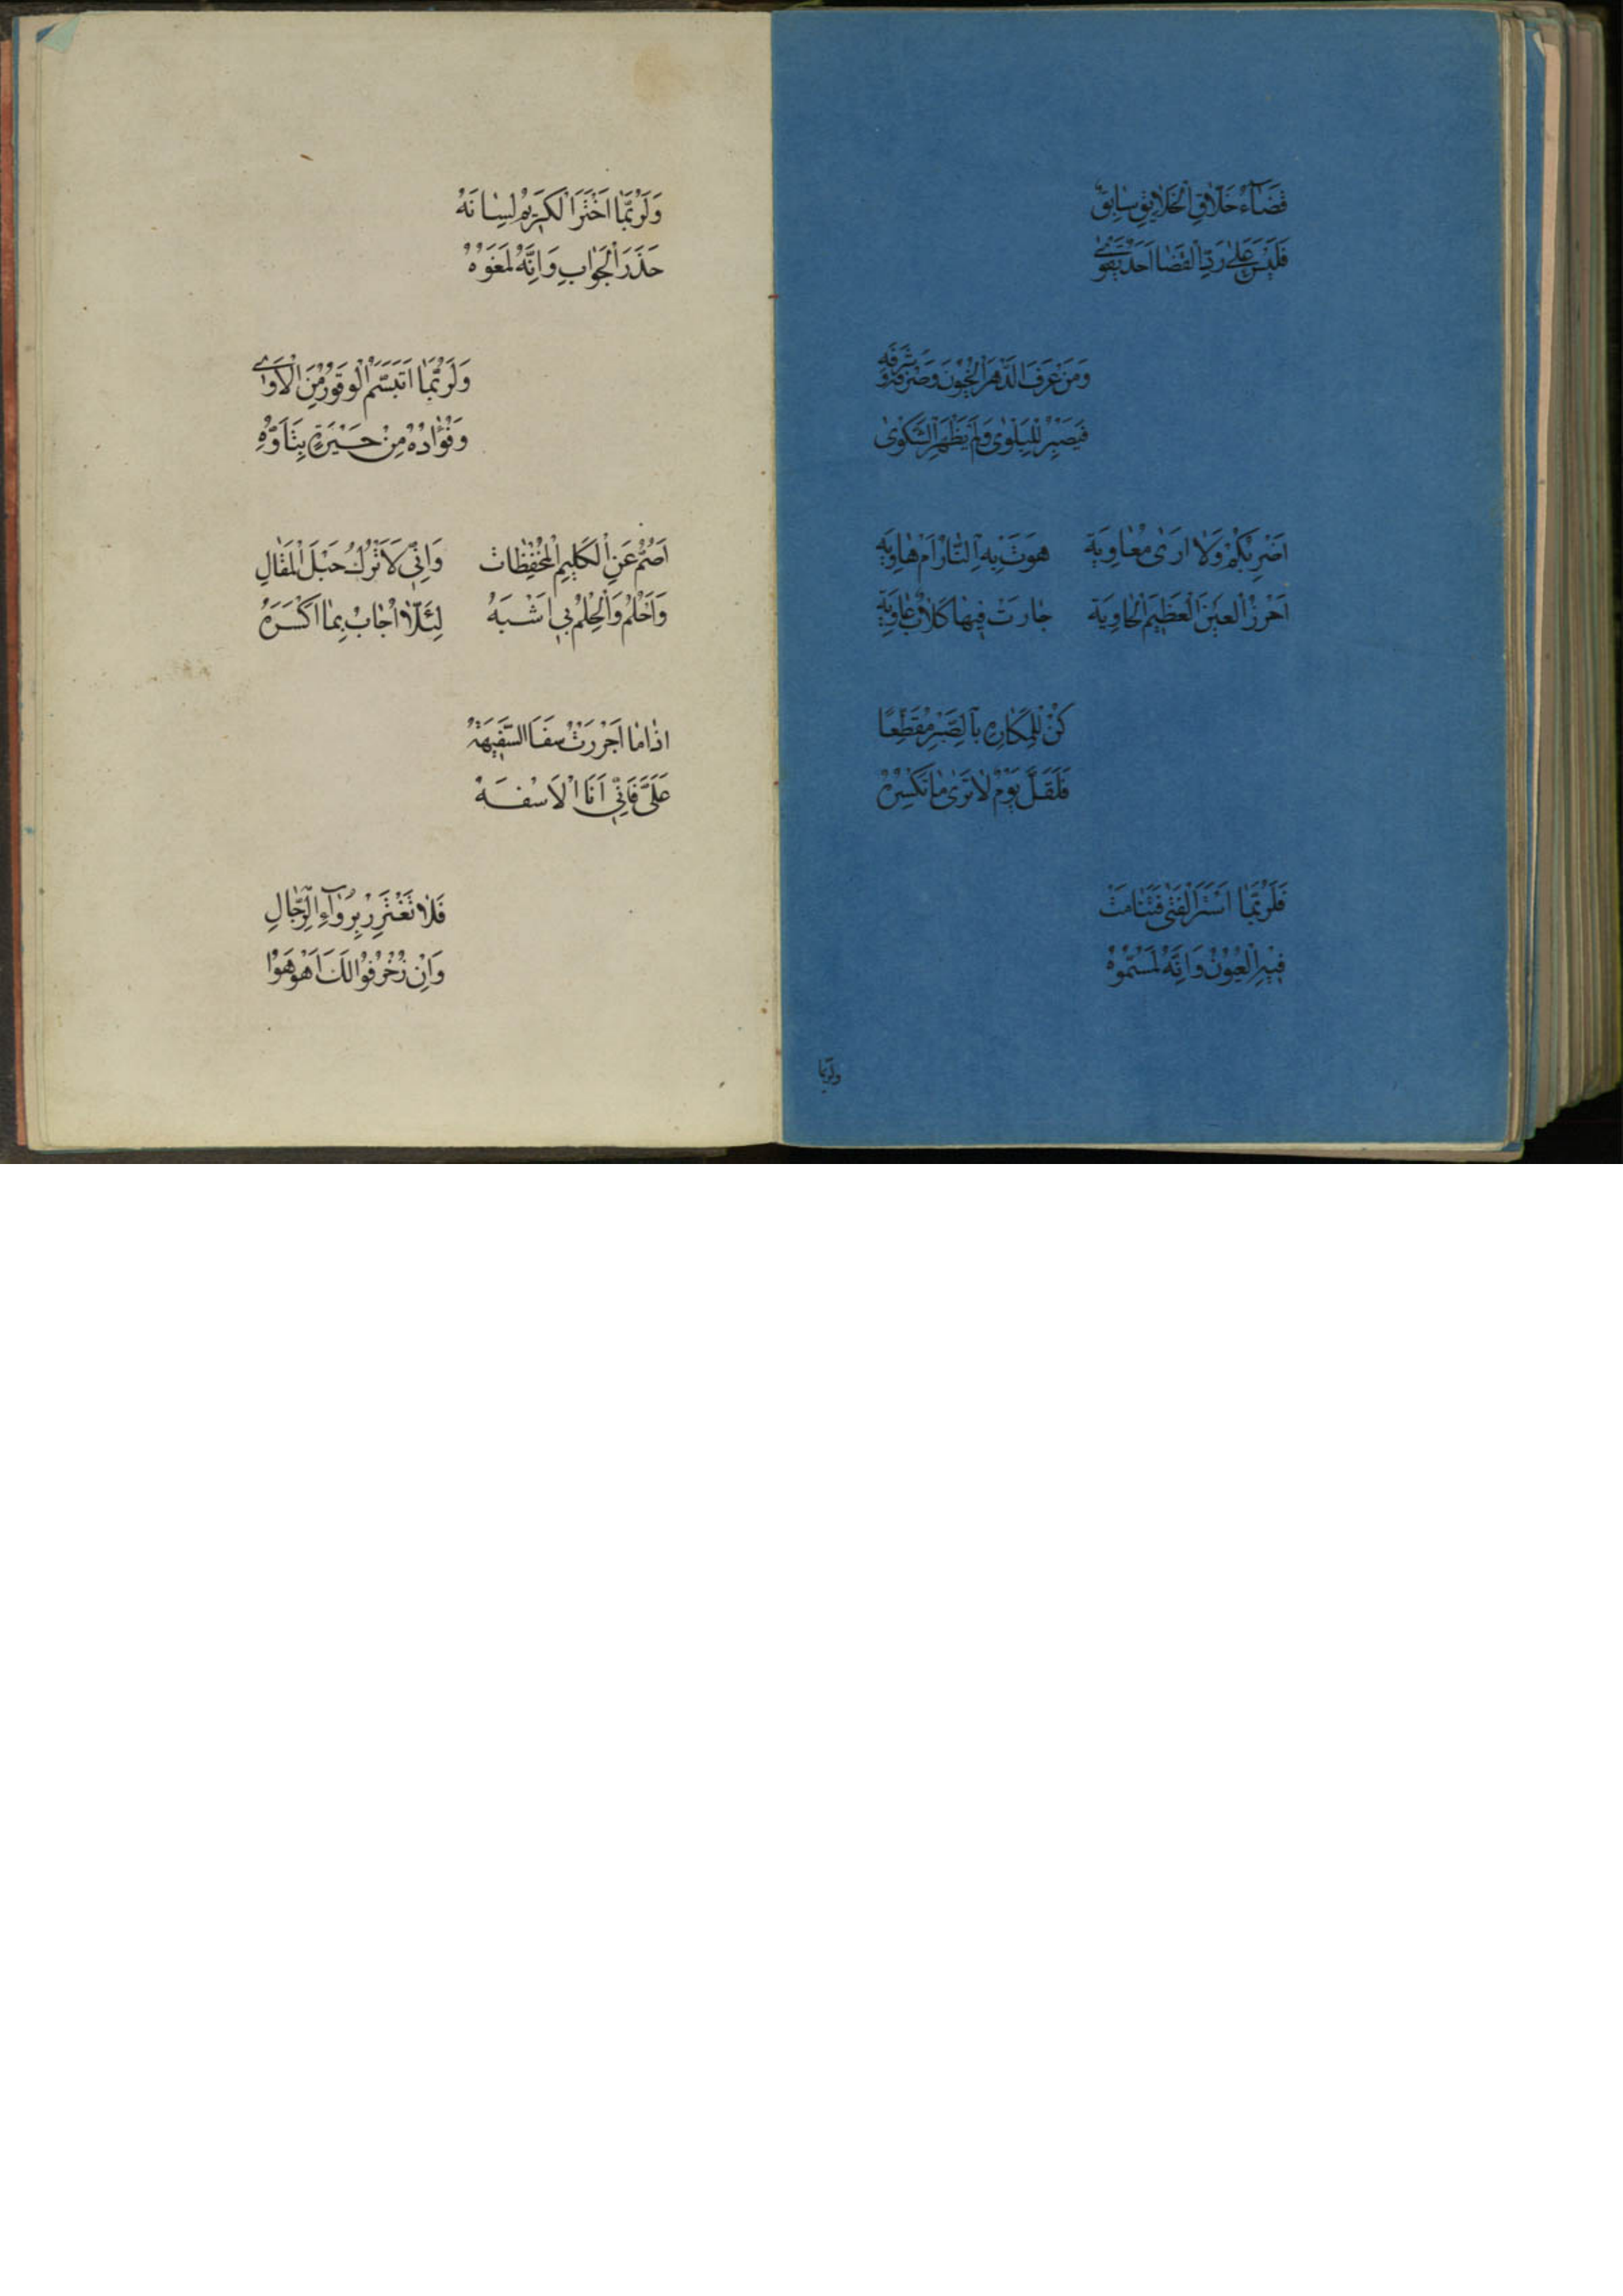 قَضَآءُ خَلَّاقِ الْخَلَايِقِ سَابِقٌ
فَلَيْسَ عَلٰى رَدِّ الْقَضَا اَحَدٌ يَقْوٰى
وَمَنْ عَرَفَ الدَّهْرَ الْخَؤُنَ وَصَرْفَهُ
فَيَصْبِرُ لِلْبَلْوٰى وَلَمْ يُظْهِرِ الشَّكْوٰى
اَضْرِبُكُمْ وَلَا اَرٰى مُعَاوِيَة هَوَتْ بِهِ النَّارُ اُمُّ هَاوِيَة
اَخْزَرَ الْعَيْنَ الْعَظِيمَ الْحَاوِيَة جَارَتْ فِيهَا كِلَابٌ عَاوِيَة
كُنْ لِلْمَكَارِهِ بِالصَّبْرِ مُقَطِّعًا
فَلَقَلَّ يَوْمٌ لَا تَرٰى مَا تَكْرَهُ
فَلَرُبَّمَا اسْتَتَرَ الْفَتٰى فَتَنَافَسَتْ
فِيهِ الْعُيُونُ وَاِنَّهُ لَمُمَوَّهُ
وَلَرُبَّمَا
وَلَرُبَّمَا اخْتَزَنَ الْكَرِيمُ لِسَانَهُ
حَذَرَ الْجَوَابِ وَاِنَّهُ لَمُفَوَّهُ
وَلَرُبَّمَا ابْتَسَمَ الْوَقُورُ مِنَ الْاَذٰى
وَفُؤَادُهُ مِنْ حَرِّهِ يَتَاَوَّهُ
اَصُمُّ عَنِ الْكَلِمِ الْمُحْفِظَاتِ وَاِنِّي لَاَتْرُكُ حَبْلَ الْمَقَالِ
وَاَحْلُمُ وَالْحِلْمُ بِي اَشْبَهُ لِئَلَّا اُجَابَ بِمَا اَكْرَهُ
اِذَا مَا اجْتَرَرْتُ سَفَاهَ السَّفِيهِ
عَلَيَّ فَاِنِّي اَنَا الْاَسْفَهُ
فَلَا تَغْتَرِرْ بِرُوَآءِ الرِّجَالِ
وَاِنْ زَخْرَفُوا لَكَ اَوْ مَوَّهُوا